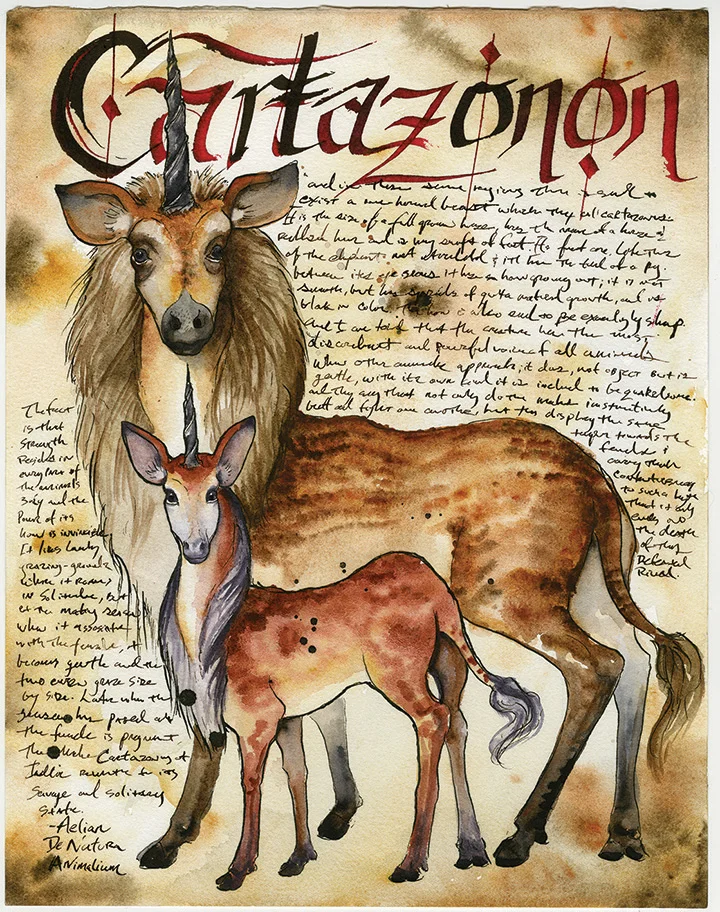 Cartazonon
and in these same regions there is said to
exist a one horned beast which they call cartazonus
It is the size of a full grown horse, has the mane of a horse &
reddish hair and is very swift of foot. Its feet are, like those
of the elephant, not and it has the tail of a pig.
between its eyebrows it has an horn growing out; it is not
smooth, but has spirals of quite natural growth, and is
black in color. This horn is also said to be exceedingly sharp.
And I am told that the creature has the most
discordant and powerful voice of all animals
When other animals approach, it does not object but is
gentle, with its own kind it is inclined to be quarrelsome.
and they say that not only do the males instinctively
butt and fight one another, but they display the same
temper towards the
females &
carry their
contentiousness
to such a length
that it only
ends on
the death
of their
Defeated
Rival.
The fact
is that
strength
Resides in
every part of
the animal's
Body and the
Power of its
horn is invincible.
It likes lonely
grazing-grounds
where it roams
in solitude, but
at the mating season
when it associates
with the female, it
becomes gentle and the
two even graze side
by side. Later when the
season has passed and
the female is pregnant
The Male Cartazonus of
India reverts to its
Savage and solitary
State.
-Aelian
De Natura
Animalium